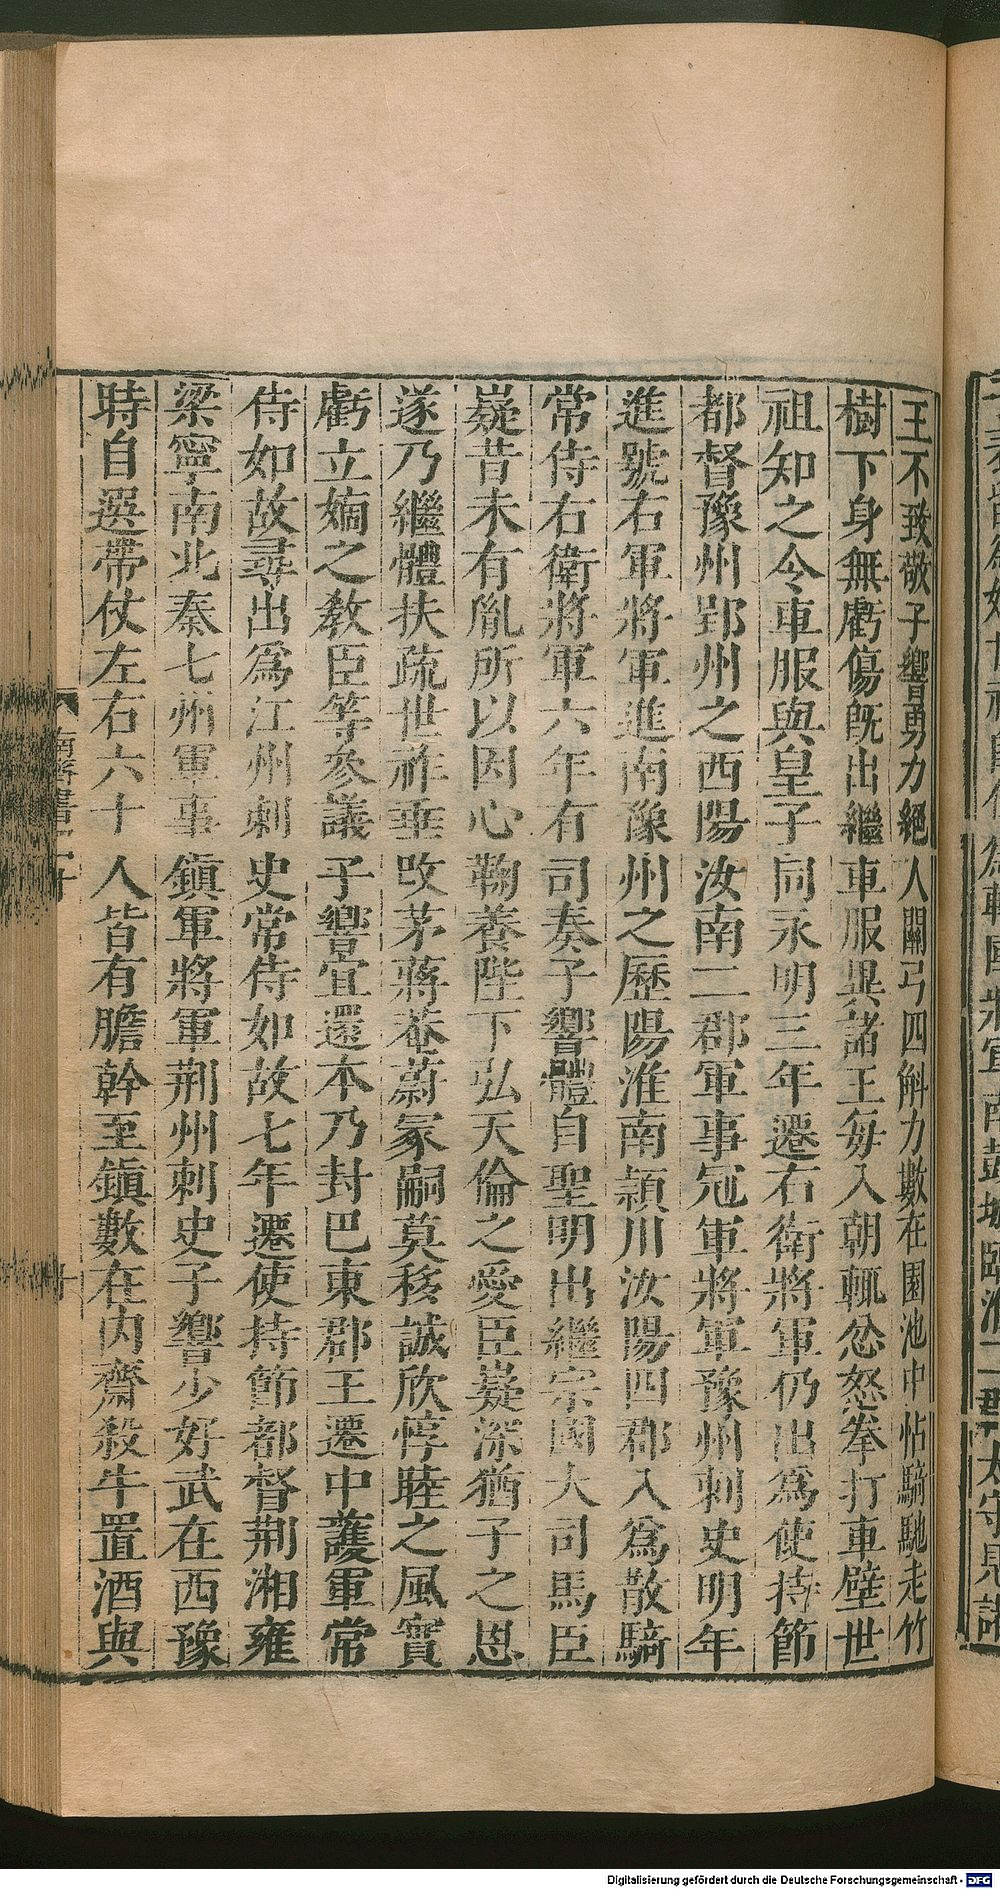 王不致敬子響勇力絕人關弓四斛力數在園池中帖騎馳走竹
樹下身無虧傷旣出繼車服異諸王每入朝輒忿怒拳打車壁世
祖知之令車服與皇子同永明三年遷右衛將軍仍出爲使持節
都督豫州郢州之西陽汝南二郡軍事冠軍將軍豫州刺史明年
進號右軍將軍進南豫州之歷陽淮南潁川汝陽四郡入爲散騎
常侍右衛將軍六年有司奏子響體自聖明出繼宗國大司馬臣
嶷昔未有胤所以因心鞠養陛下弘天倫之愛臣嶷深猶子之恩
遂乃繼體扶疏世祚垂改茅蔣菴蔚冢嗣莫移誠欣惇睦之風實
虧立嫡之敎臣等參議子響宜還本乃封巴東郡王遷中護軍常
侍如故尋出爲江州刺史常侍如故七年遷使持節都督荆湘雍
梁寧南北秦七州軍事鎭軍將軍荆州刺史子響少好武在西豫
時自選帶仗左右六十人皆有膽幹至鎭數在內齋殺牛置酒與
南齊書
十
Digitalisierung gefördert durch die Deutsche Forschungsgemeinschaft - DFG